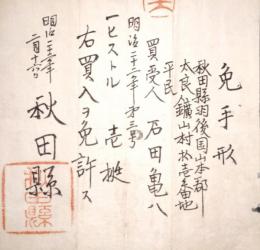 免手形
秋田縣羽後国山本郡
太良鑛山村拾壱番地
平民
買受人 石田亀八
明治二十二年第三号
一ピストル 壱挺
右買入ヲ免許ス
明治二十二年
二月十六日
秋田縣
秋田縣